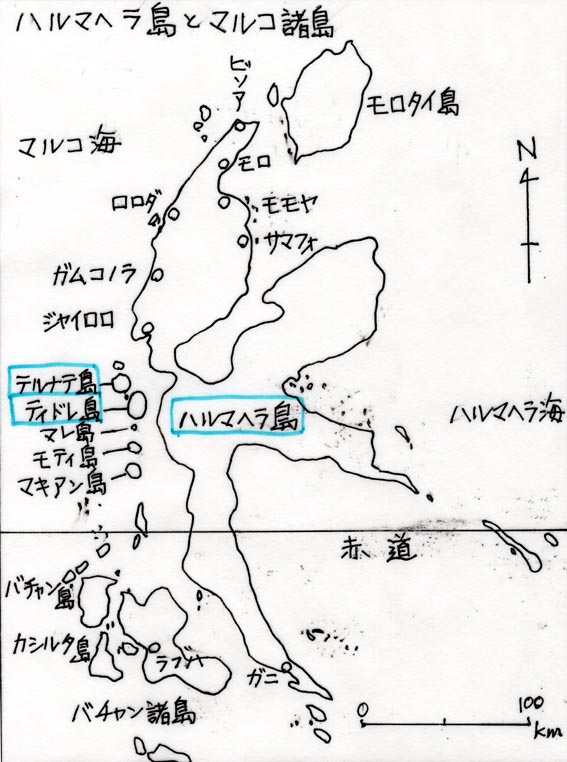 ハルマヘラ島とマルコ諸島
ビソア
モロタイ島
マルコ海
モロ
N
ロロダ
モモヤ
サマフォ
ガムコノラ
ジャイロロ
テルナテ島
ティドレ島
ハルマヘラ島
ハルマヘラ海
マレ島
モティ島
マキアン島
赤道
バチャン島
カシルタ島
ラブハ
ガニ
バチャン諸島
0
100
km